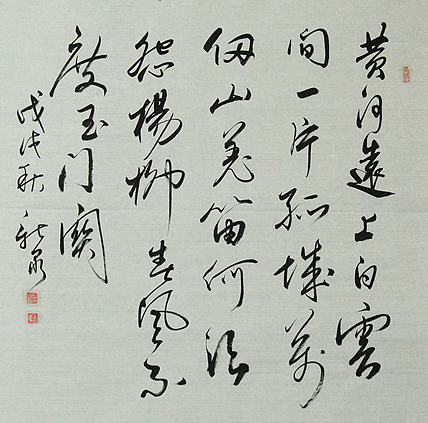 黄河遠上白雲
間一片孤城萬
仞山羌笛何須
怨楊柳春風不
度玉门関
戊戌秋